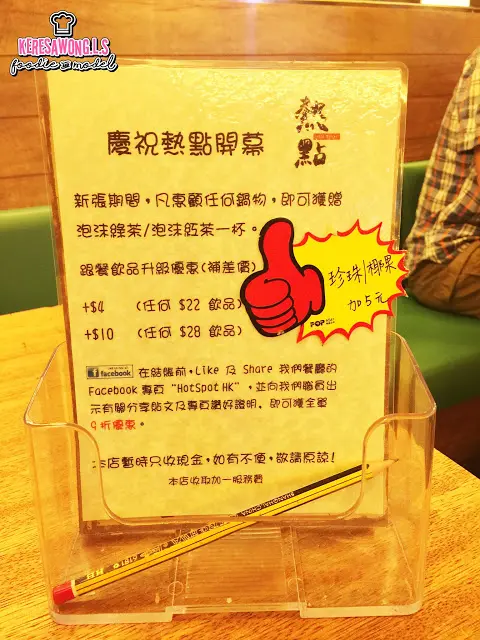 KERESAWONG.I.S
foodie model
熱點
慶祝熱點開幕
新張期間，凡惠顧任何鍋物，即可獲贈
泡沫綠茶/泡沫紅茶一杯。
跟餐飲品升級優惠(補差價)
+$4 (任何 $22 飲品)
+$10 (任何 $28 飲品)
珍珠/椰果
加5元
POP
facebook 在結帳前，Like 及 Share 我們餐廳的
Facebook 專頁 "HotSpot HK"，並向我們職員出
示有關分享貼文及專頁讚好證明，即可獲全單
9折優惠。
本店暫時只收現金，如有不便，敬請原諒！
本店收取加一服務費